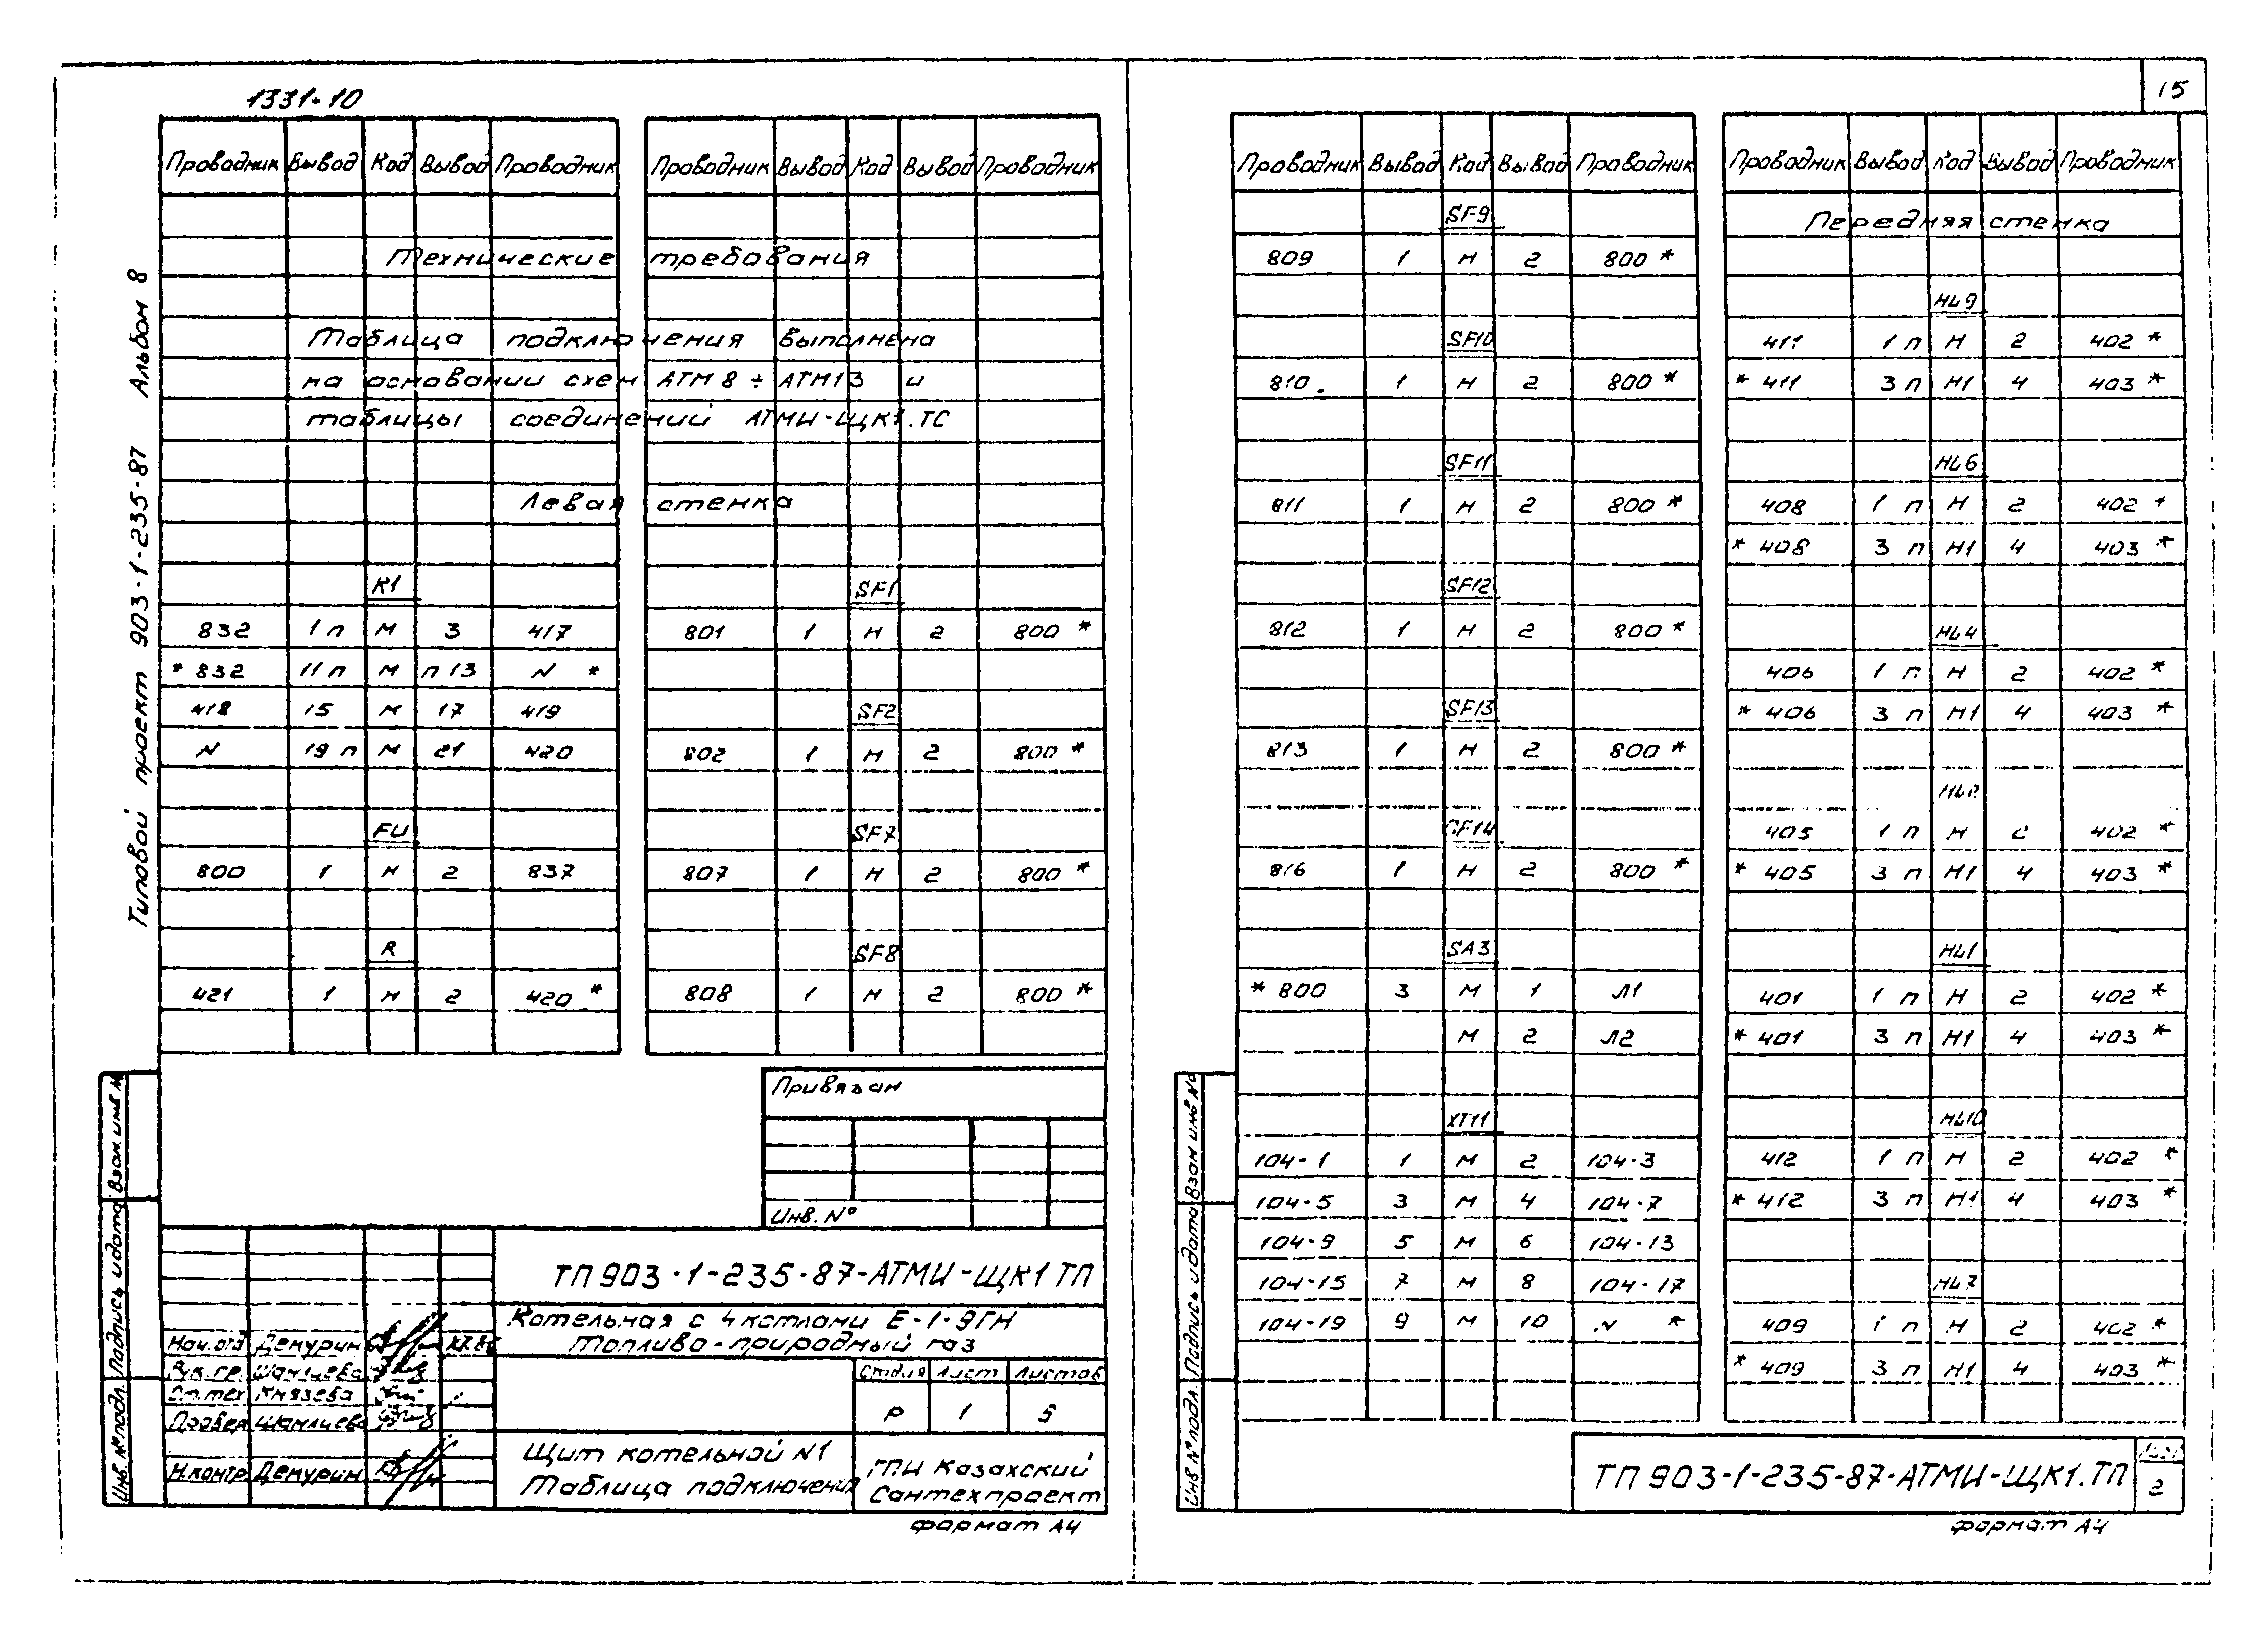 1331-10
15
Альбом 8
Типовой проект 903-1-235-87
Проводник Вывод Код Вывод Проводник
Технические требования
Таблица подключения выполнена
на основании схем АТМ 8 ÷ АТМ13 и
таблицы соединений АТМИ-ЩК1.ТС
Левая стенка
К1
832 1 п М 3 417
* 832 11 п М п 13 N *
418 15 М 17 419
N 19 п М 21 420
FU
800 1 Н 2 837
R
421 1 Н 2 420 *
Проводник Вывод Код Вывод Проводник
SF1
801 1 Н 2 800 *
SF2
802 1 Н 2 800 *
SF7
807 1 Н 2 800 *
SF8
808 1 Н 2 800 *
Привязан
Инв. №
ТП 903-1-235-87-АТМИ-ЩК1 ТП
Котельная с 4 котлами Е-1-9ГН
Топливо-природный газ
Нач.отд Демурин
Рук.гр. Шамшева
Ст.тех Князева
Провер
Н.контр. Демурин
Стадия Лист Листов
Р 1 5
Щит котельной N1
Таблица подключения
ГПИ Казахский
Сантехпроект
Формат А4
Инв. № подл. Подпись и дата Взам инв №
Проводник Вывод Код Вывод Проводник
SF9
809 1 Н 2 800 *
SF10
810. 1 Н 2 800 *
SF11
811 1 Н 2 800 *
SF12
812 1 Н 2 800 *
SF13
813 1 Н 2 800 *
SF14
816 1 Н 2 800 *
SA3
* 800 3 М 1 Л1
М 2 Л2
XT11
104-1 1 М 2 104-3
104-5 3 М 4 104-7
104-9 5 М 6 104-13
104-15 7 М 8 104-17
104-19 9 М 10 N *
Проводник Вывод Код Вывод Проводник
Передняя стенка
HL9
411 1 п Н 2 402 *
* 411 3 п Н1 4 403 *
HL6
408 1 п Н 2 402 *
* 408 3 п Н1 4 403 *
HL4
406 1 п Н 2 402 *
* 406 3 п Н1 4 403 *
405 1 п Н 2 402 *
* 405 3 п Н1 4 403 *
HL1
401 1 п Н 2 402 *
* 401 3 п Н1 4 403 *
HL10
412 1 п Н 2 402 *
* 412 3 п Н1 4 403 *
HL7
409 1 п Н 2 402 *
* 409 3 п Н1 4 403 *
Инв № подл. Подпись и дата Взам инв №
ТП 903-1-235-87-АТМИ-ЩК1.ТП
Лист
2
Формат А4